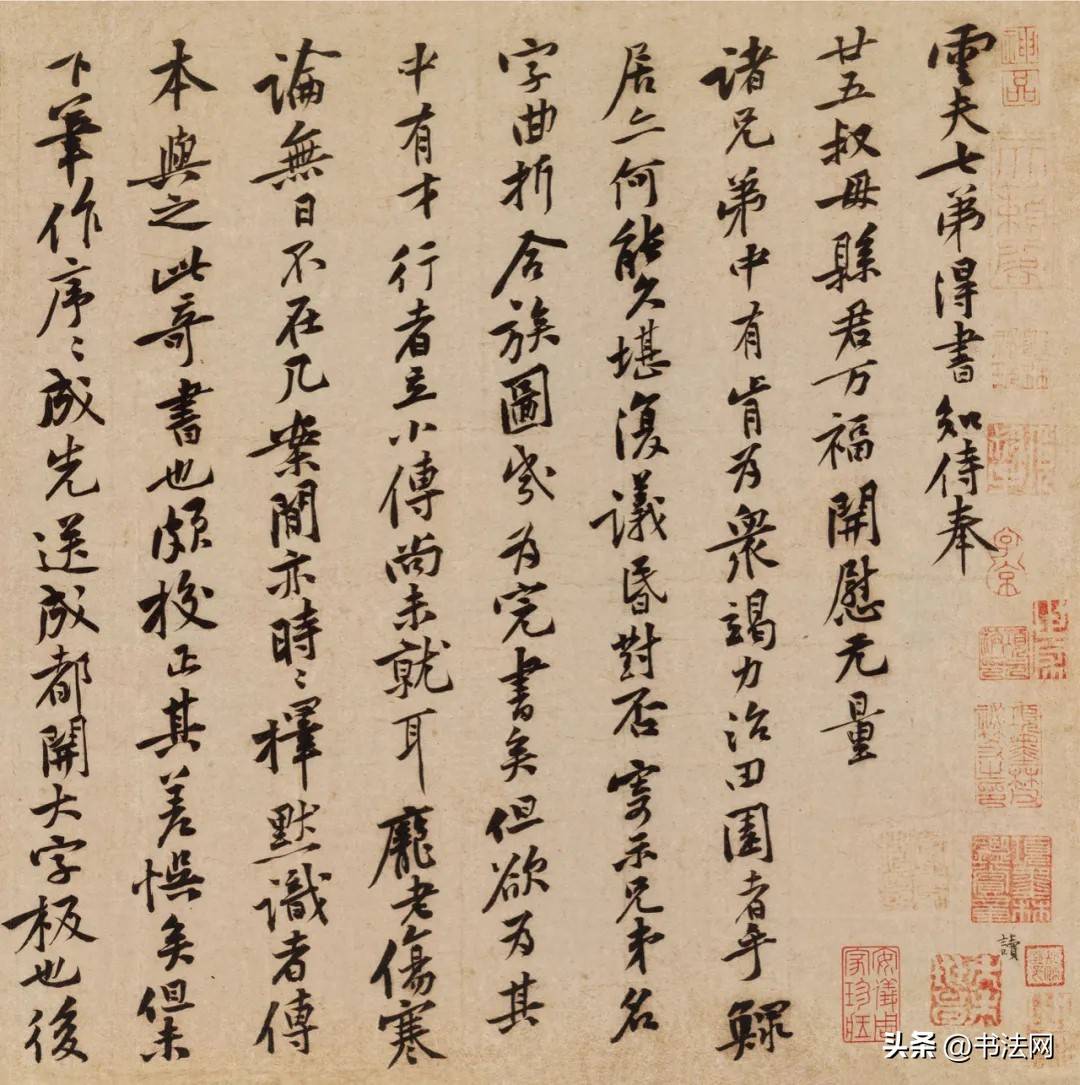 雲夫七弟得書知侍奉
廿五叔母縣君万福開慰无量
諸兄弟中有肯为衆竭力治田園者乎鰥
居亦何能久堪復議昏對否寄示兄弟名
字曲折合族圖 为完書矣但欲为其
中有才行者立小傳尚未就耳龐老傷寒
論無日不在几案閒亦時〻擇默識者傳
本與之此奇書也頗校正其差悞矣但未
下筆作序〻成先送成都開大字板也後
神品
讀
安儀周家珍藏
头条 @书法网